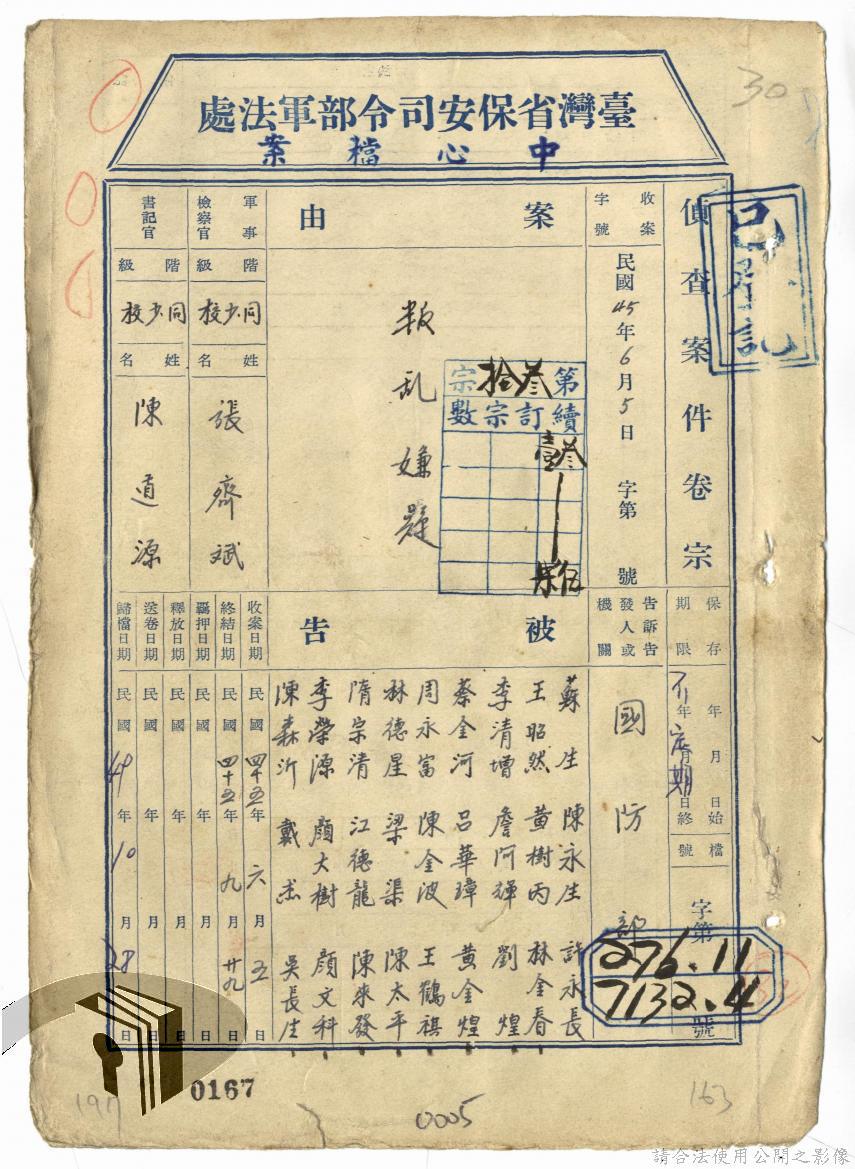 30
臺灣省保安司令部軍法處
中心檔案
已登記
偵查案件卷宗
保存期限
年月日始
年月日終
不定期
檔號
字第
號
276.11
7132.4
收案字號
民國45年6月5日
字第 號
告訴告發人或機關
國防部
案由
叛乱嫌疑
第叁拾宗
續訂宗數
叁壹
伍柒
被告
蘇生 陳永生 許永長
王昭然 黃樹丙 林金春
李清增 詹阿輝 劉煌
蔡金河 呂華璋 黃金煌
周永富 陳金波 王鶴祺
林德星 梁渠 陳太平
隋宗清 江德龍 陳來發
李榮源 顏大樹 顏文科
陳森沂 戴杰 吳長生
軍事檢察官
階級
同少校
姓名
張齊斌
書記官
階級
同少校
姓名
陳道源
收案日期
民國四十五年六月五日
終結日期
民國四十五年九月廿九日
羈押日期
民國 年 月 日
釋放日期
民國 年 月 日
送卷日期
民國 年 月 日
歸檔日期
民國49年10月28日
197
0167
0005
163
請合法使用公開之影像